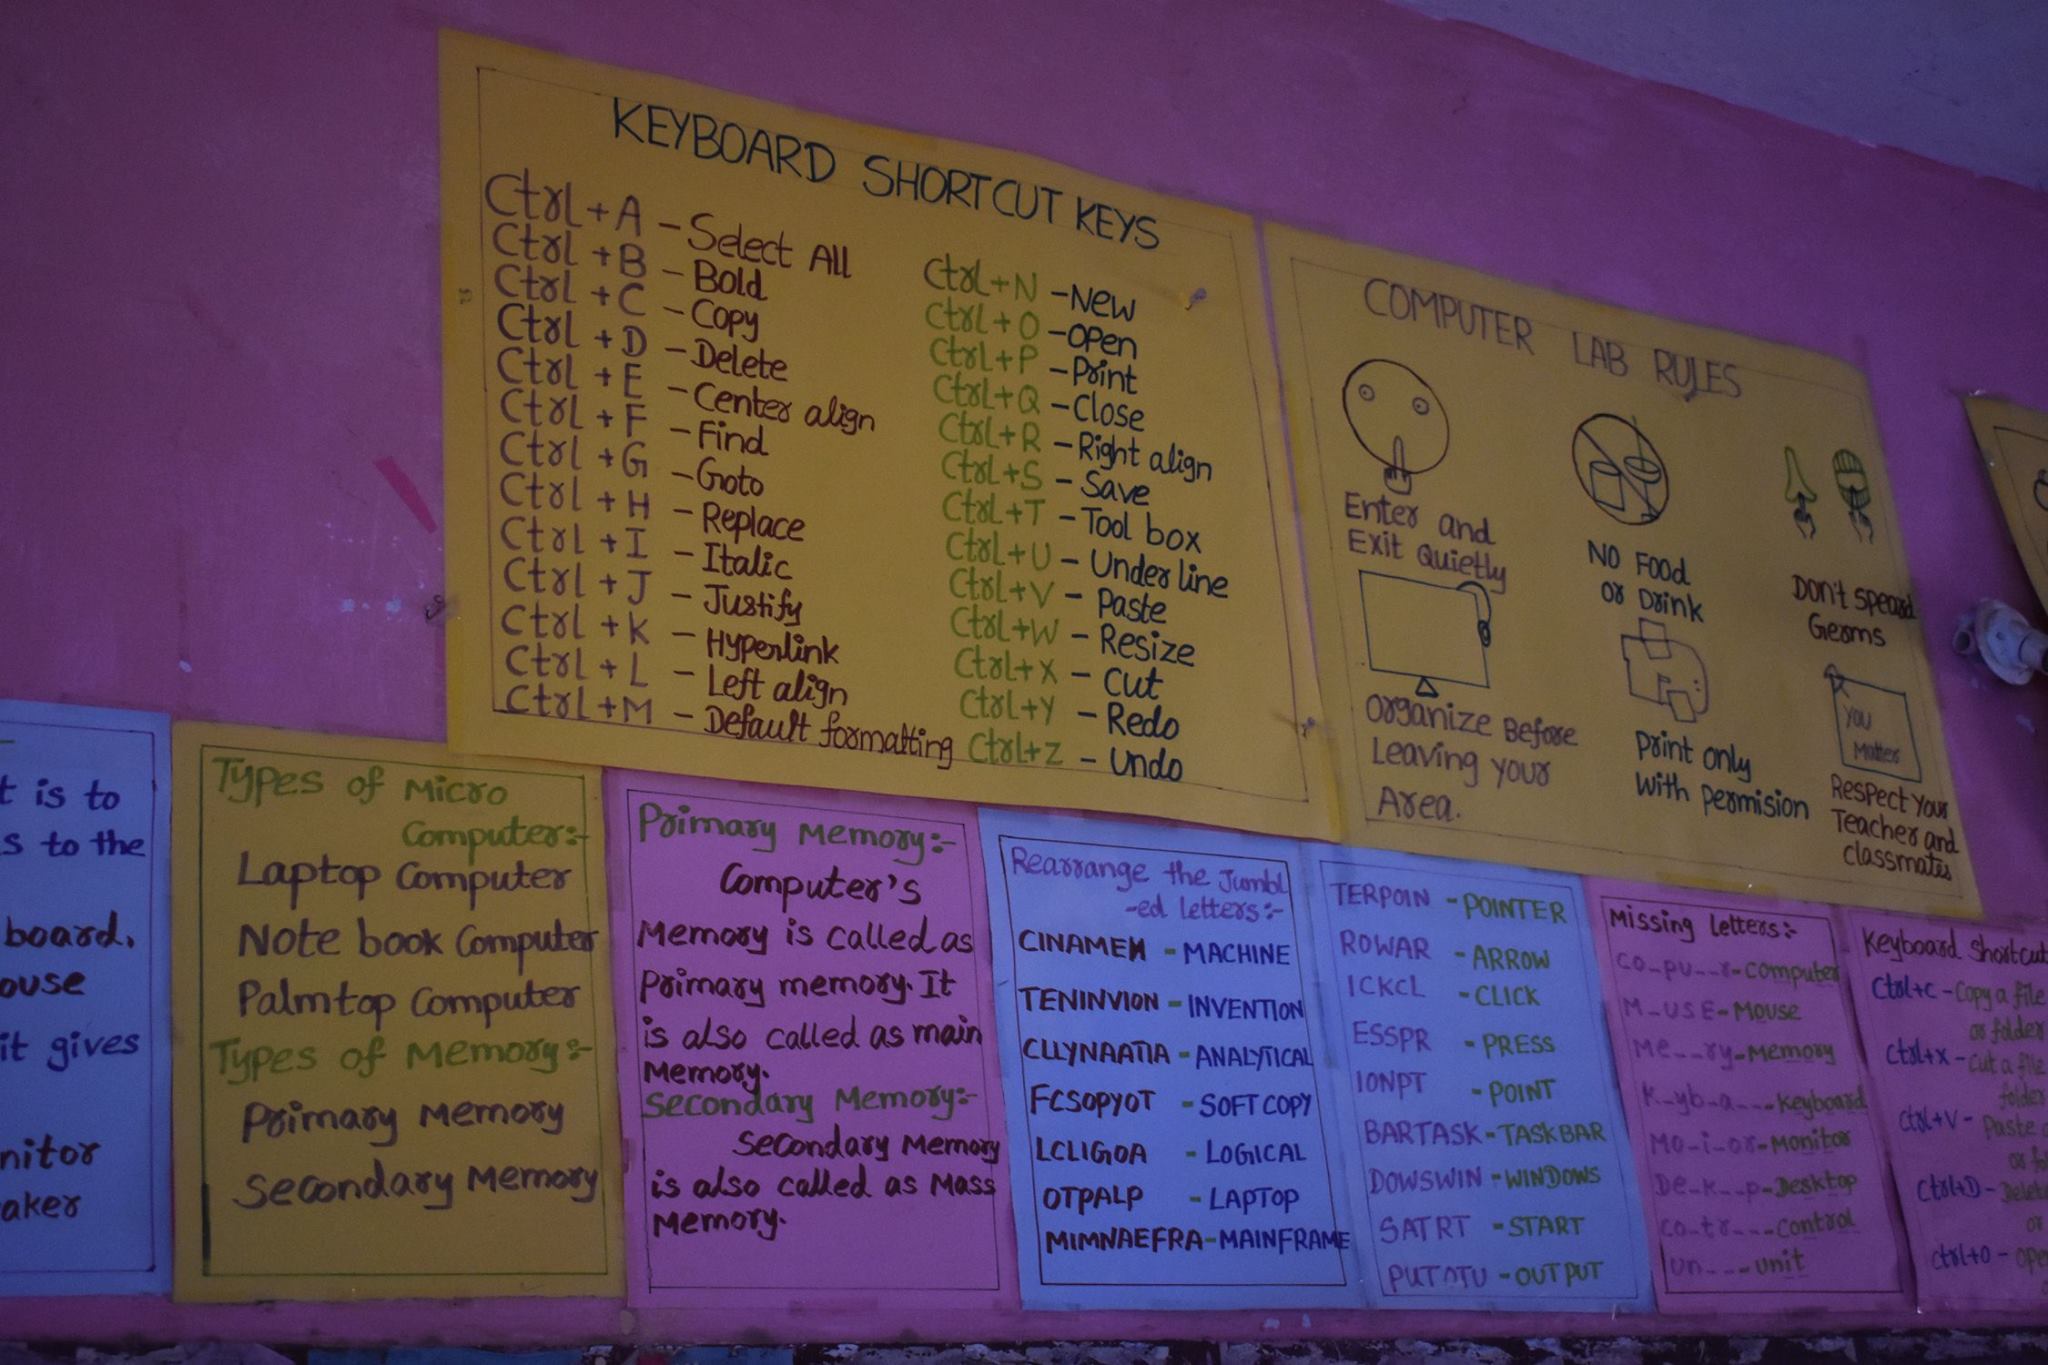 KEYBOARD SHORTCUT KEYS
Ctrl + A - Select All
Ctrl + B - Bold
Ctrl + C - Copy
Ctrl + D - Delete
Ctrl + E - Center align
Ctrl + F - Find
Ctrl + G - Goto
Ctrl + H - Replace
Ctrl + I - Italic
Ctrl + J - Justify
Ctrl + K - Hyperlink
Ctrl + L - Left align
Ctrl + M - Default formatting
Ctrl+N - New
Ctrl+O - Open
Ctrl+P - Print
Ctrl+Q - Close
Ctrl+R - Right align
Ctrl+S - Save
Ctrl+T - Tool box
Ctrl+U - Under line
Ctrl+V - Paste
Ctrl+W - Resize
Ctrl+X - Cut
Ctrl+Y - Redo
Ctrl+Z - Undo
COMPUTER LAB RULES
Enter and
Exit Quietly
NO Food
or Drink
Don't speard
Germs
Organize Before
Leaving your
Area.
Print only
With permision
You
Matter
Respect Your
Teacher and
classmates
t is to
s to the
board.
ouse
it gives
nitor
aker
Types of Micro
Computer:-
Laptop Computer
Note book Computer
Palmtop Computer
Types of Memory:-
Primary Memory
Secondary Memory
Primary Memory:-
Computer's
Memory is called as
Primary memory. It
is also called as main
Memory.
Secondary Memory:-
Secondary Memory
is also called as Mass
Memory.
Rearrange the Jumbl
-ed letters:-
CINAMEH - MACHINE
TENINVION - INVENTION
CLLYNAATIA - ANALYTICAL
FCSOPYOT - SOFT COPY
LCLIGOA - LOGICAL
OTPALP - LAPTOP
MIMNAEFRA - MAINFRAME
TERPOIN - POINTER
ROWAR - ARROW
ICKCL - CLICK
ESSPR - PRESS
IONPT - POINT
BARTASK - TASKBAR
DOWSWIN - WINDOWS
SATRT - START
PUTOTU - OUTPUT
Missing letters:-
Co_pu__r - Computer
M_USE - Mouse
Me__ry - Memory
K_yb_a__ - Keyboard
Mo_i_or - Monitor
De_k__p - Desktop
Co_tr__ - Control
Un__ - unit
Keyboard shortcut
Ctrl+C - Copy a file
or folder
Ctrl+X - Cut a file
folder
Ctrl+V - Paste
or fo
Ctrl+D - Delete
or
Ctrl+O - Open